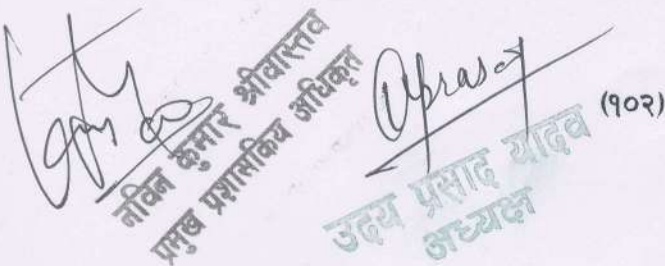 नविन कुमार श्रीवास्तव
प्रमुख प्रशासकिय अधिकृत
(१०२)
उदय प्रसाद यादव
अध्यक्ष